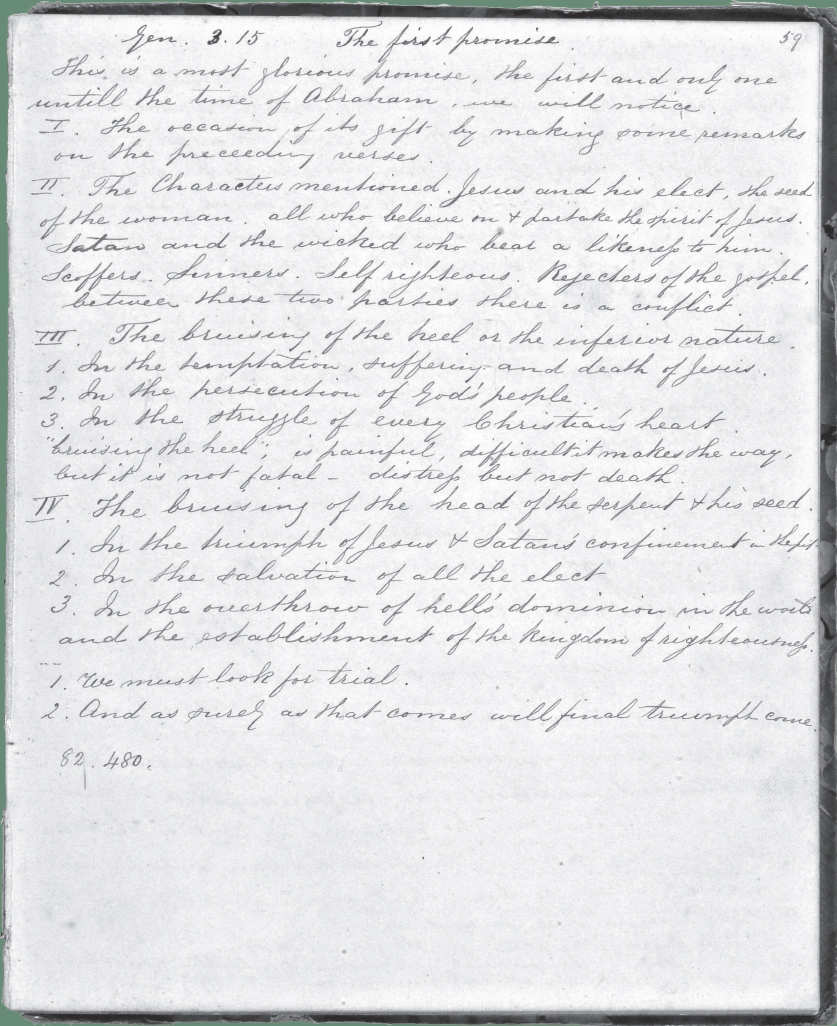 Gen. 3. 15 The first promise. 59
This is a most glorious promise, the first and only one
untill the time of Abraham. we will notice.
I. The occasion of its gift by making some remarks
on the preceeding verses.
II. The Characters mentioned. Jesus and his elect, the seed
of the woman. all who believe on & partake the spirit of Jesus.
Satan and the wicked who bear a likeness to him.
Scoffers. Sinners. Self righteous. Rejecters of the gospel.
between these two parties there is a conflict.
III. The bruising of the heel or the inferior nature.
1. In the temptation, suffering and death of Jesus.
2. In the persecution of God's people.
3. In the struggle of every Christian's heart.
"bruising the heel"; is painful, difficult it makes the way,
but it is not fatal - distress but not death.
IV. The bruising of the head of the serpent & his seed.
1. In the triumph of Jesus & Satan's confinement in the pit
2. In the salvation of all the elect
3. In the overthrow of hell's dominion in the world
and the establishment of the kingdom of righteousness.
1. We must look for trial.
2. And as surely as that comes will final triumph come.
82. 480.